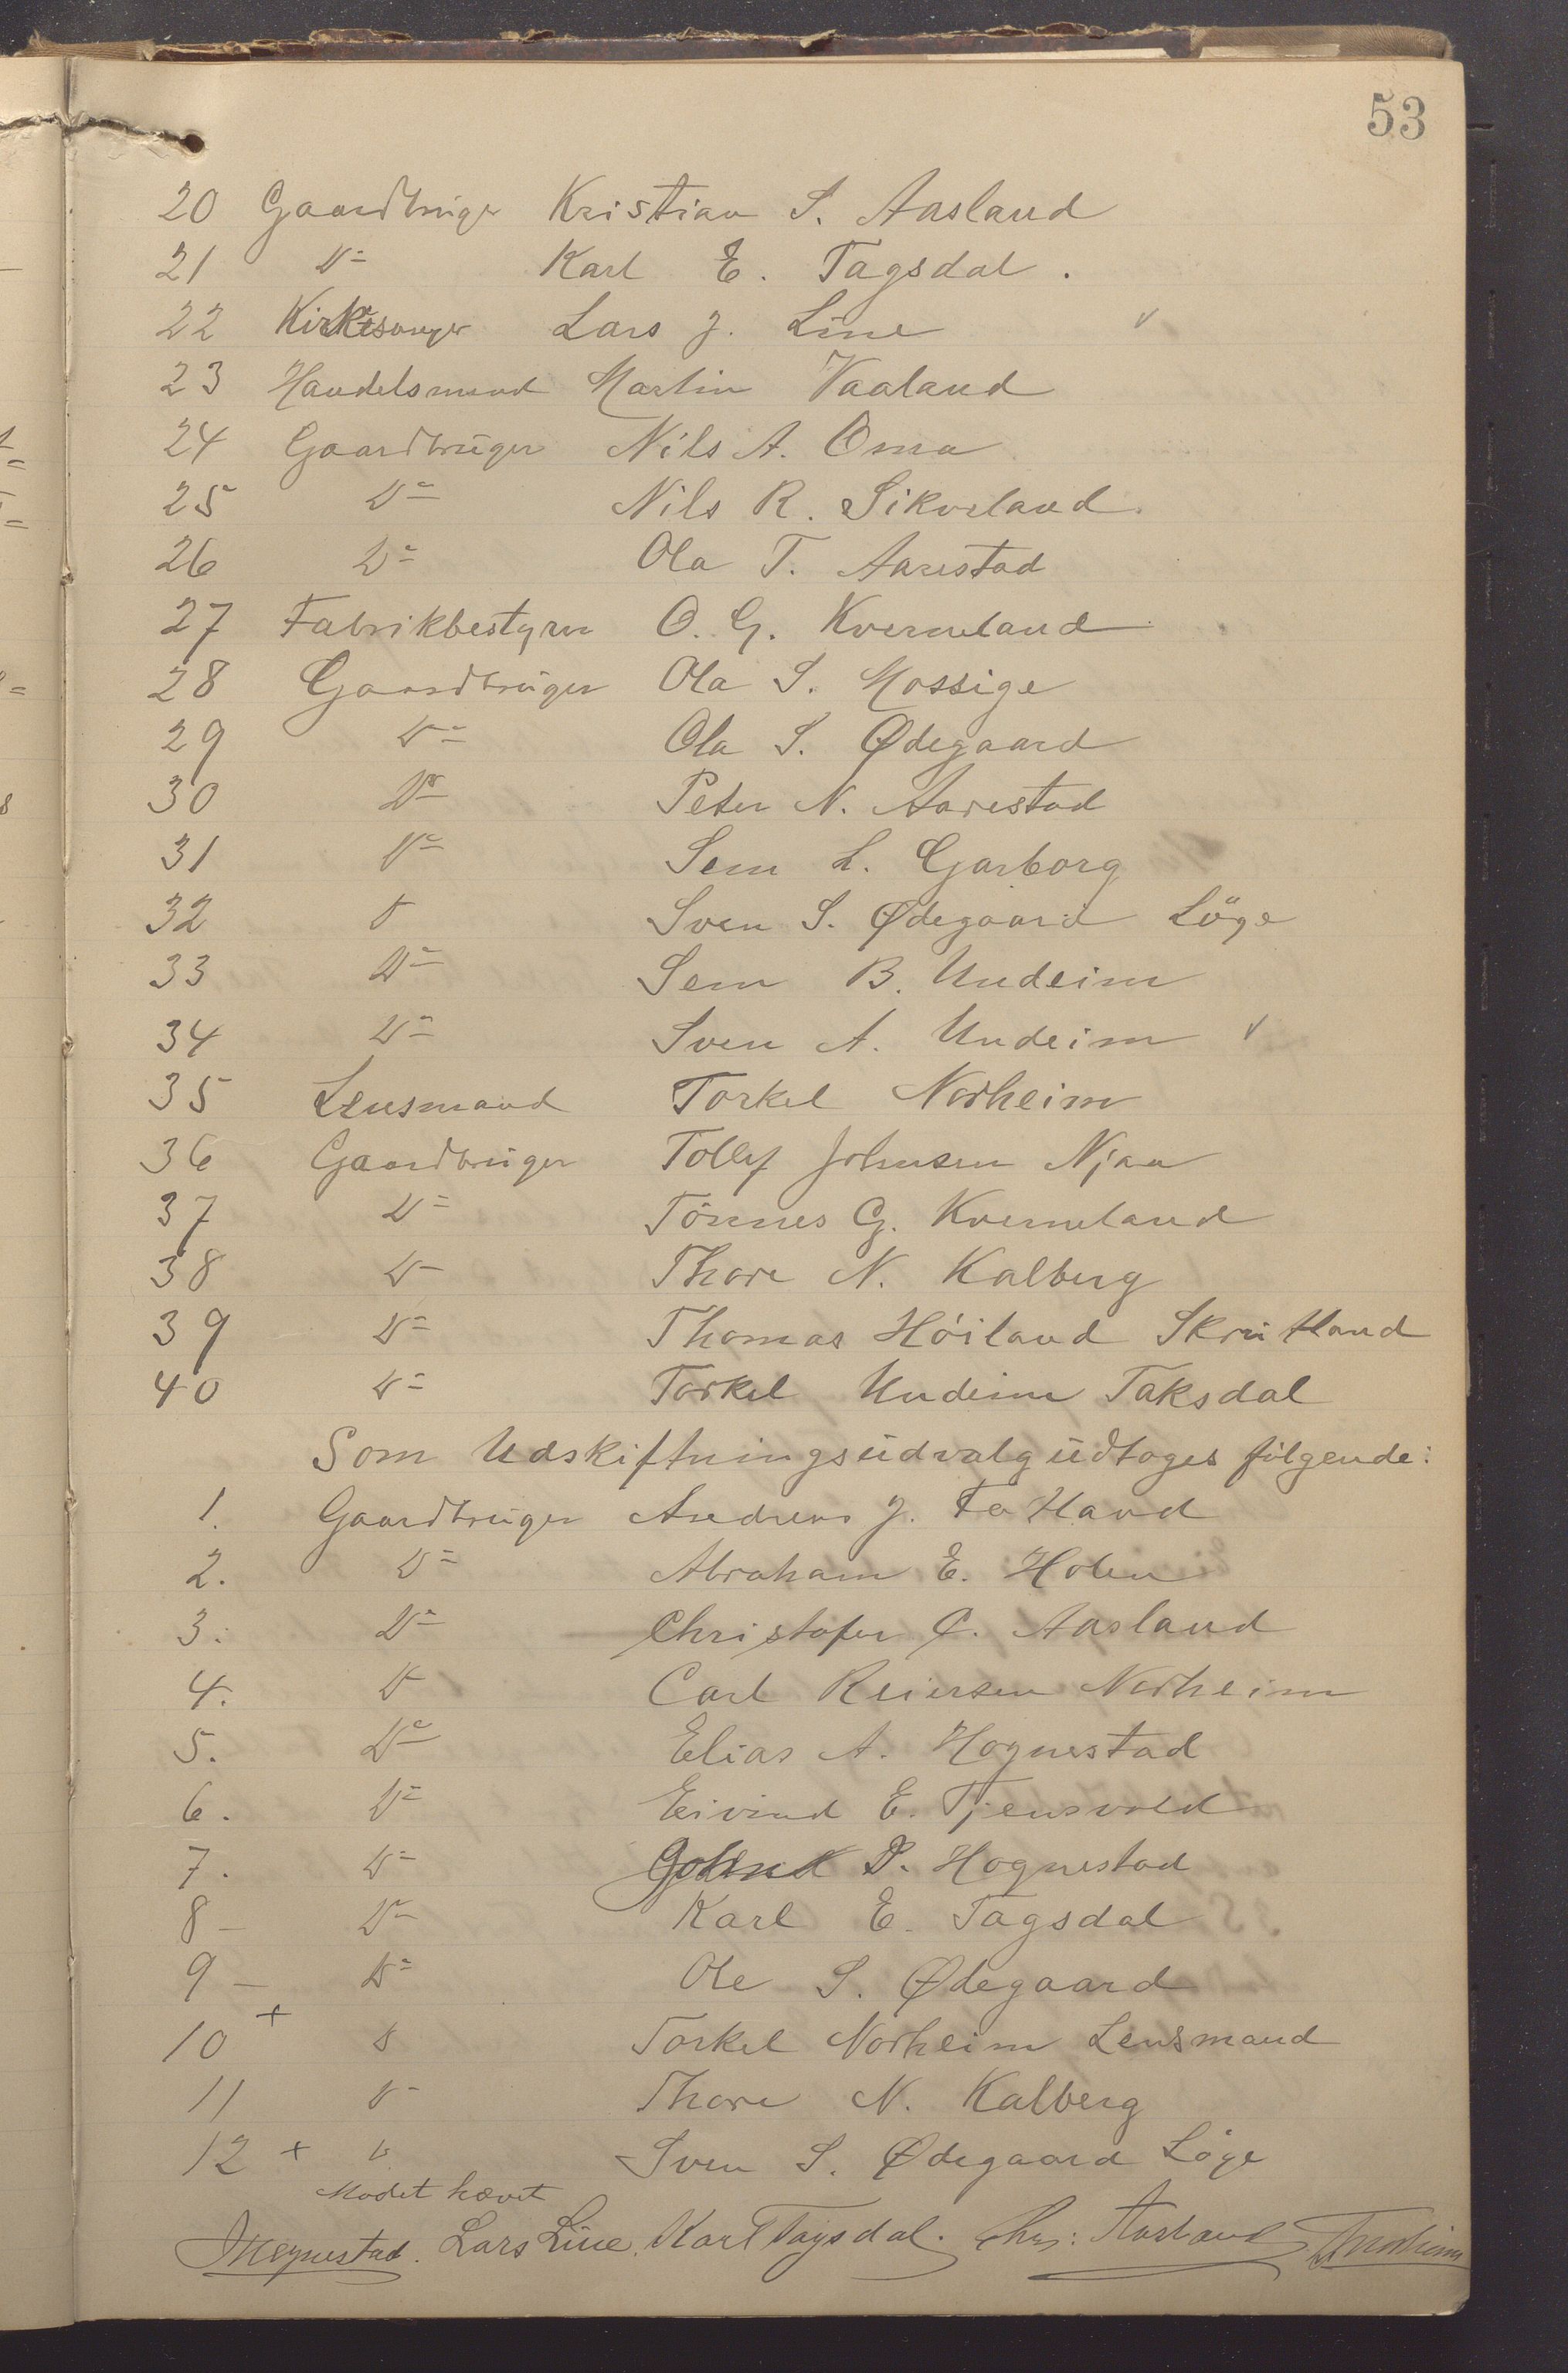 53
20 Gaardbruger Kristian S. Aasland
21 Do Karl E. Tagsdal.
22 Kirkesanger Lars J. Line
23 Handelsmand Martin Vaaland
24 Gaardbruger Nils A. Oma
25 Do Nils R. Sikveland.
26 Do Ola T. Aarestad
27 Fabrikbestyrer O. G. Kverneland
28 Gaardbruger Ola S. Mossige
29 Do Ola S. Ødegaard
30 Do Peter N. Aarestad
31 Do Sem L. Garborg
32 Do Sven S. Ødegaard Löge
33 Do Sem B. Undeim
34 Do Sven A. Undeim
35 Lensmand Torkel Norheim
36 Gaardbruger Tollef Johnsen Njaa
37 Do Tönnes G. Kverneland
38 Do Thore N. Kalberg
39 Do Thomas Höiland Skrutland
40 Do Torkel Undeim Taksdal
Som Udskiftningsudvalg udtoges følgende:
1. Gaardbruger Andreas J. Fotland
2. Do Abraham E. Holen
3. Do Christofer C. Aasland
4. Do Carl Reiersen Norheim
5. Do Elias A. Hognestad
6. Do Eivind E. Tjensvold
7. Do P. Hognestad
8 - Do Karl E. Tagsdal
9 - Do Ole S. Ødegaard
10 + Do Torkel Norheim Lensmand
11 Do Thore N. Kalberg
12 + Do Sven S. Ødegaard Löge
Mødet hævet
Hognestad. Lars Line. Karl Tagsdal. Chr: Aasland